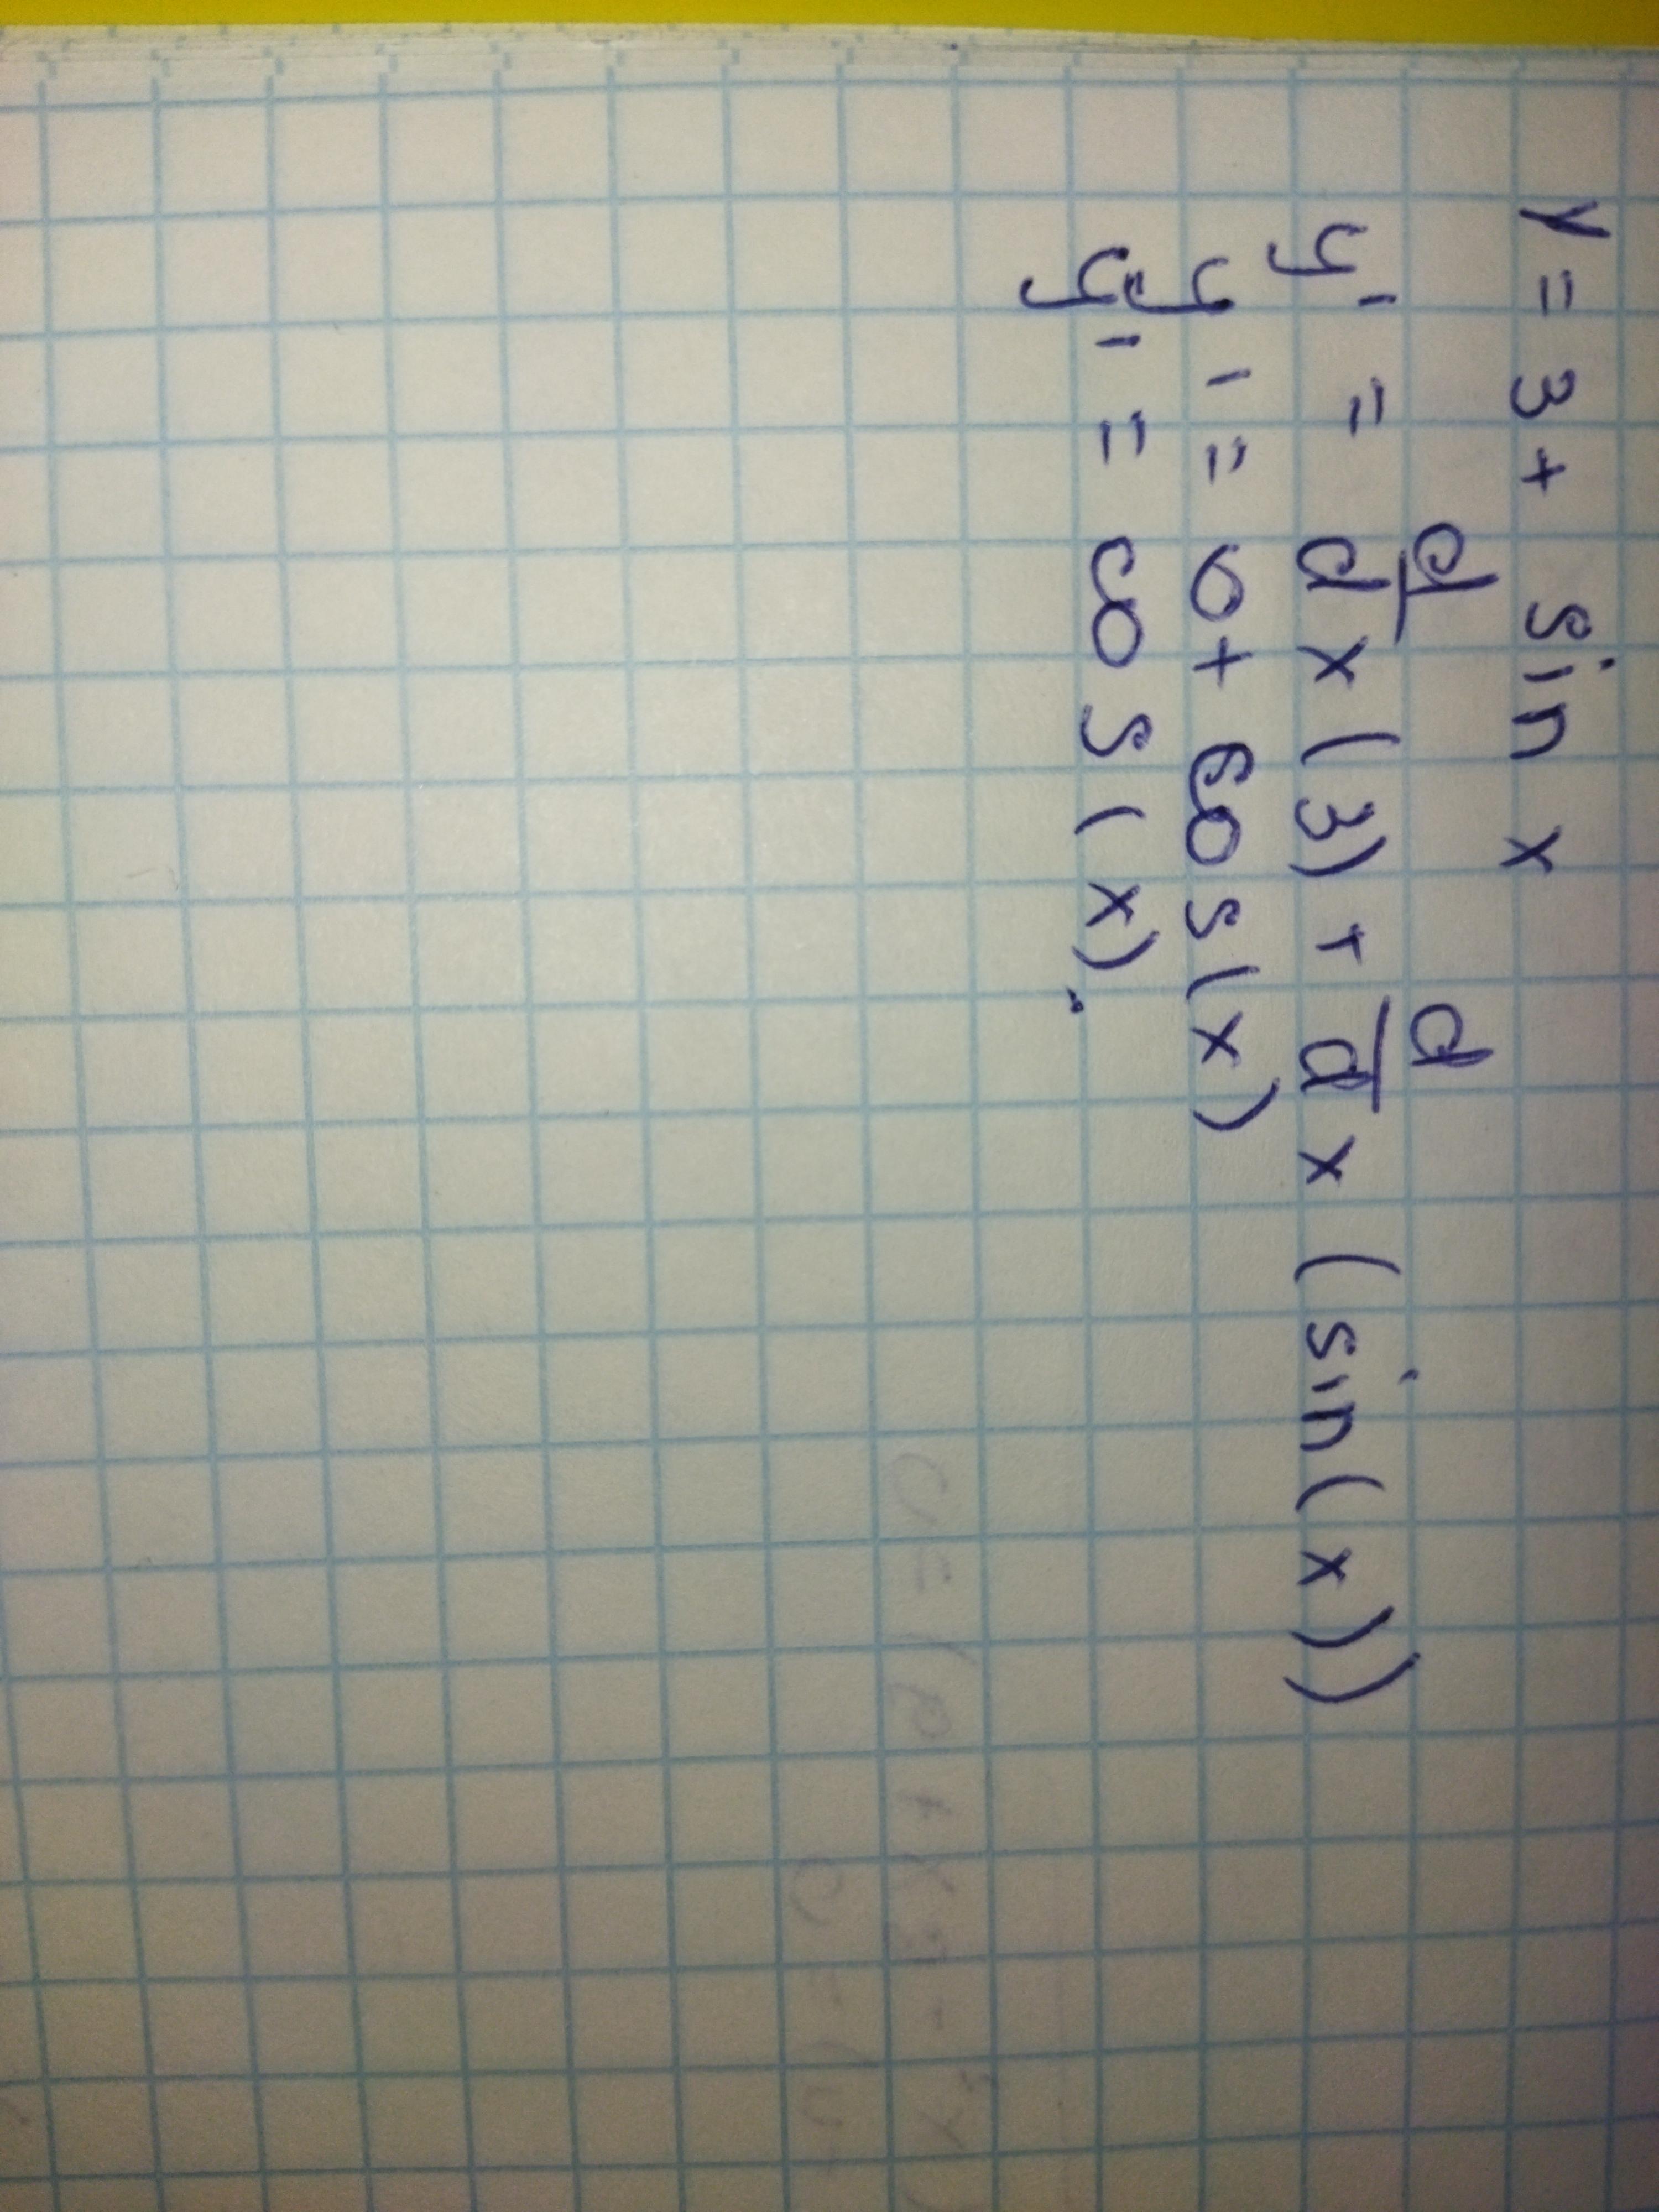 y = 3 + sin x
y' = d/dx (3) + d/dx (sin(x))
y' = 0 + cos(x)
y' = cos(x).